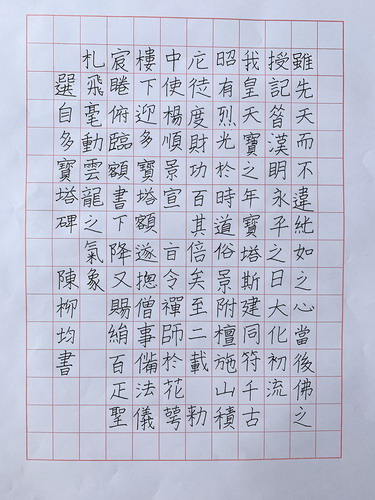 雖先天而不違紕如之心當後佛之
授記昔漢明永平之日大化初流
我皇天寶之年寶塔斯建同符千古
昭有烈光於時道俗景附檀施山積
庀徒度財功百其倍矣至二載 勑
中使楊順景宣 旨令禪師於花萼
樓下迎多寶塔額遂揔僧事備法儀
宸睠俯臨額書下降又賜絹百疋聖
札飛毫動雲龍之氣象
選自多寶塔碑 陳柳均書